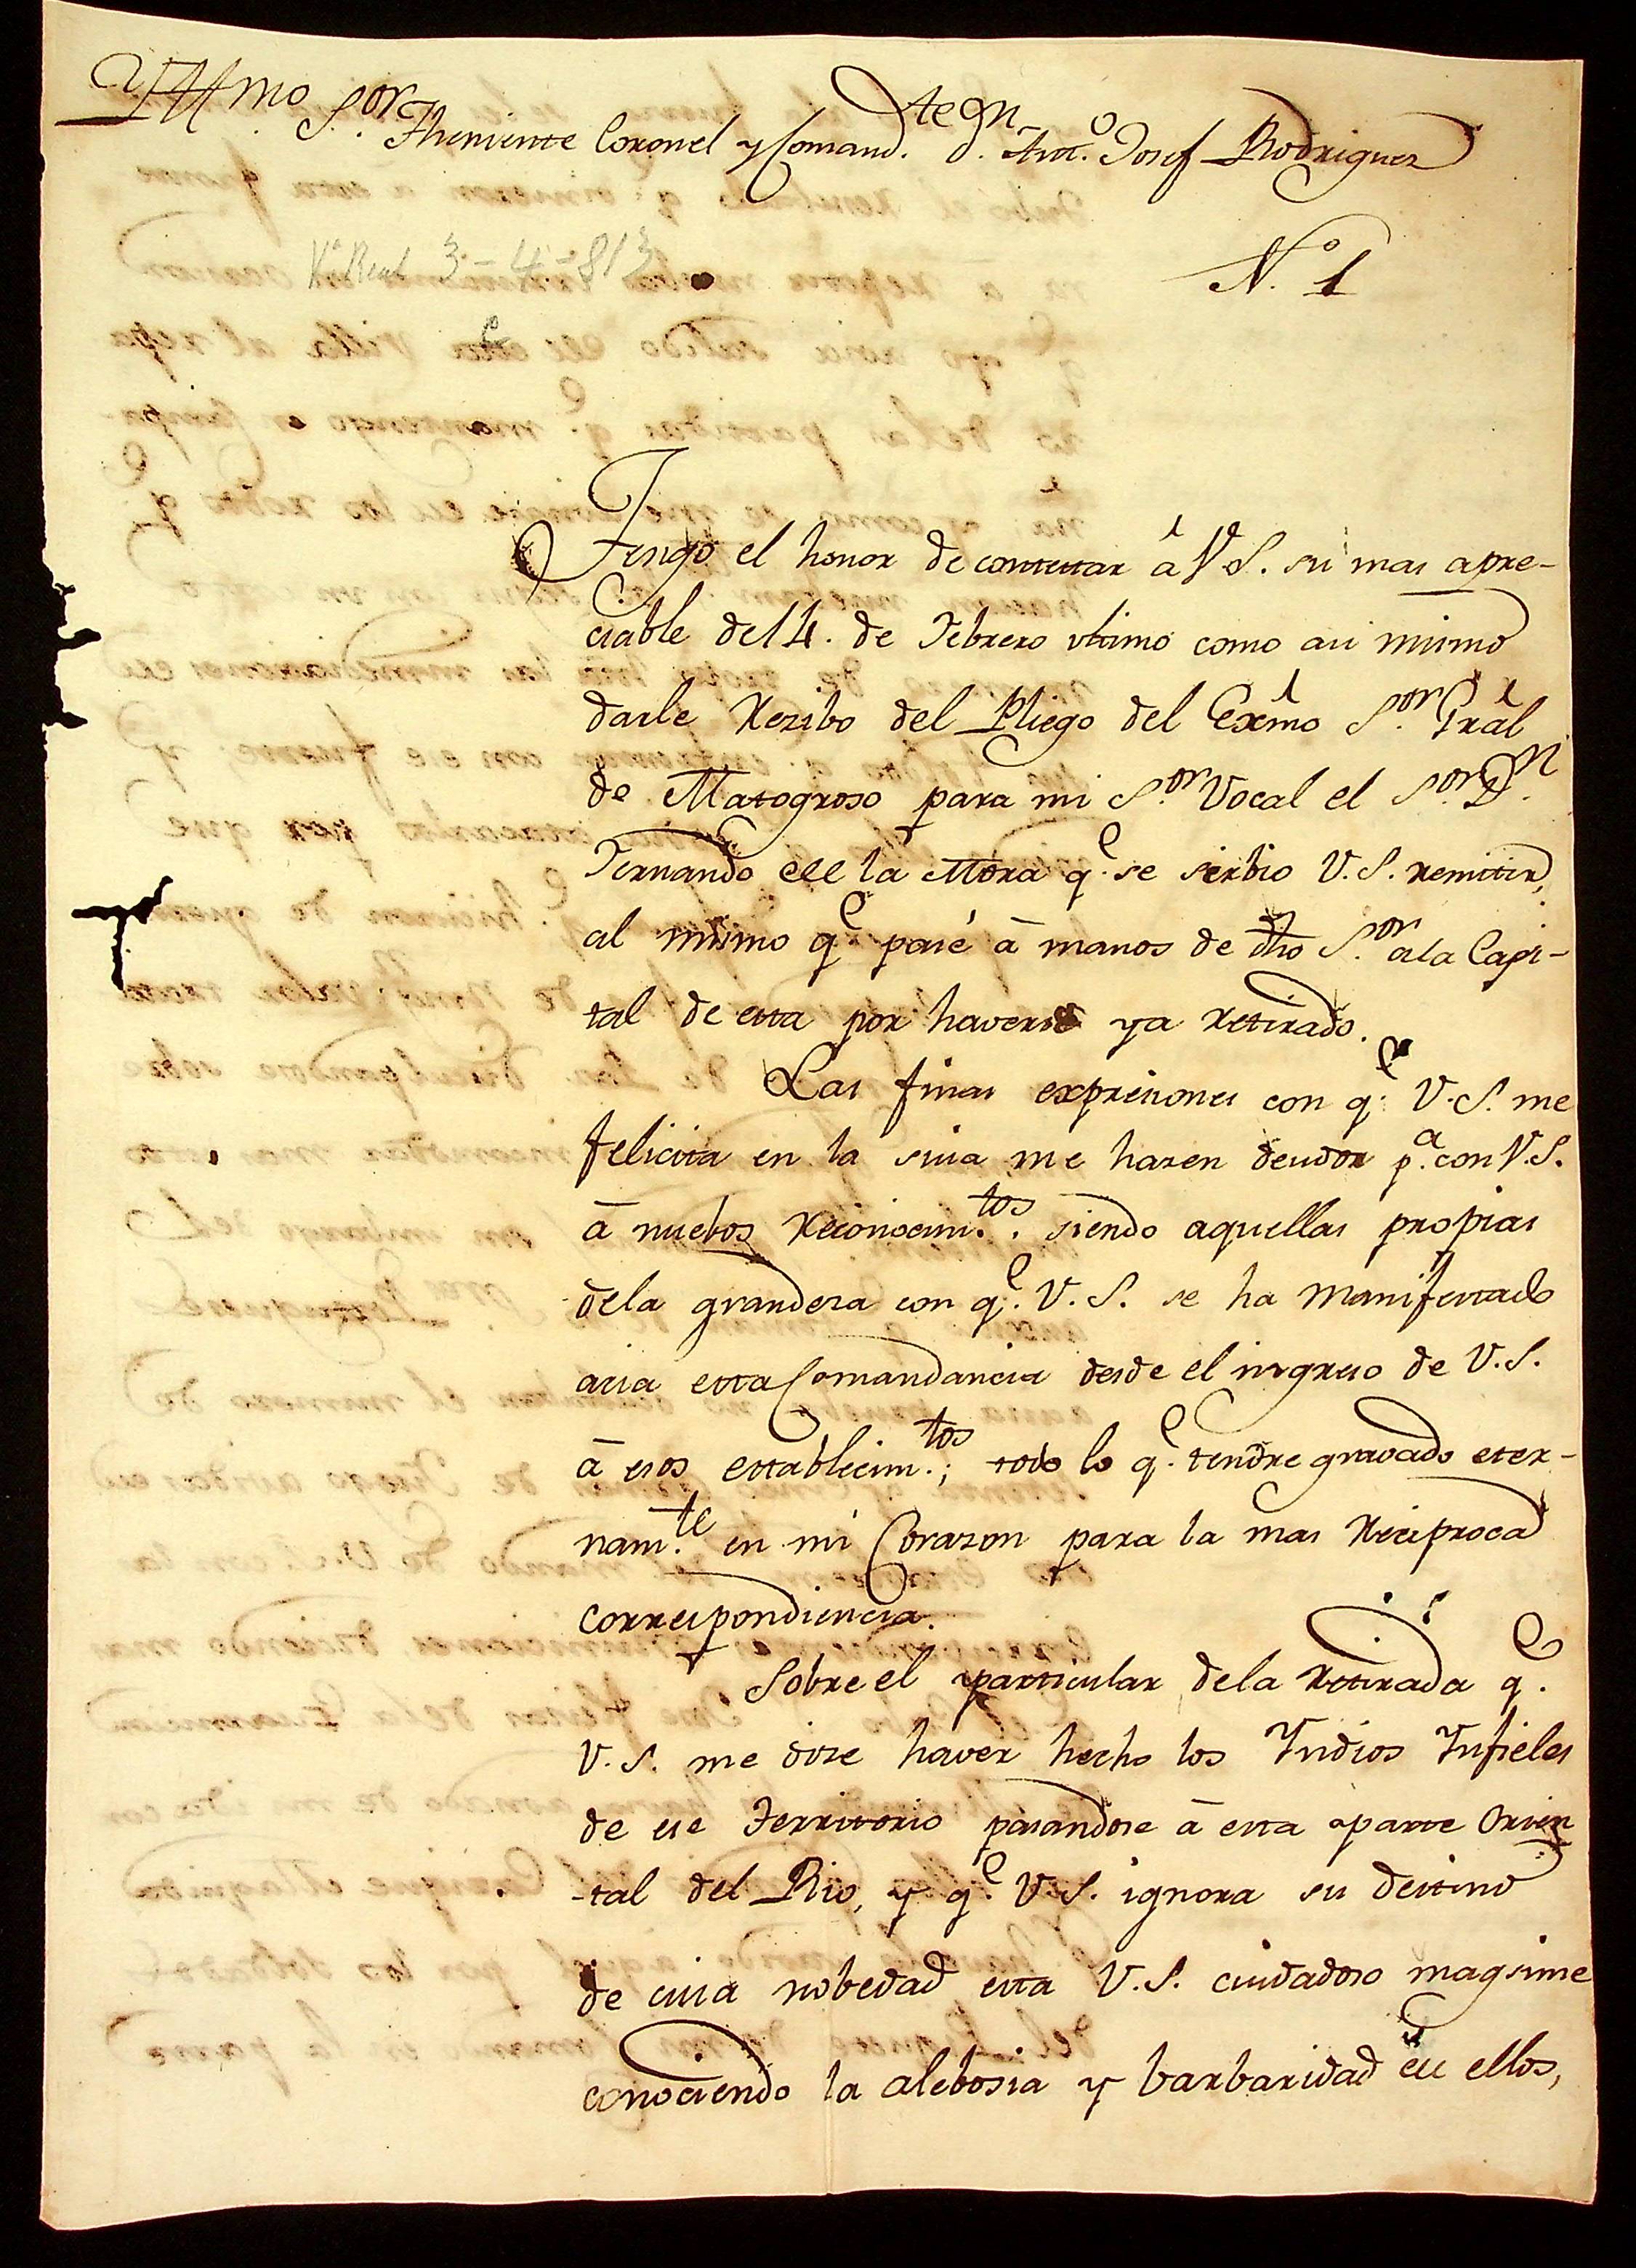 Yllmo. S.or Theniente Coronel y Comand.te D.n Ant.o Josef Rodriguez
Va Real 3-4-813
N.o 1
Tengo el honor de contestar â V.S. su mas apre-
ciable del 4. de Febrero vltimo como asi mismo
darle Rezibo del Pliego del Exmo S.or Gral
de Matogroso para mi S.or Vocal el S.or D.n
Fernando de la Mora q.e se sirbio V.S. remitir,
al mismo q.e pasé â manos de dho S.or ala Capi-
tal de esta por haverse ya Retirado.
Las finas expresiones con q.e V.S. me
felicita en la suia me hazen deudor p.a con V.S.
â nuebos Reconocim.tos siendo aquellas propias
dela grandeza con q.e V.S. se ha manifestado
acia esta Comandancia desde el ingreso de V.S.
â esos establecim.tos; todo lo q.e tendre gravado eter-
nam.te en mi Corazon para la mas Reciproca
correspondiencia.
Sobre el particular dela Retirada q.e
V.S. me dize haver hecho los Yndios Ynfieles
de ese Territorio pasandose â esta parte Orien
-tal del Rio, y q.e V.S. ignora su destino
de cuia nobedad esta V.S. cuidadoso magsime
conociendo la alebosia y barbaridad de ellos,